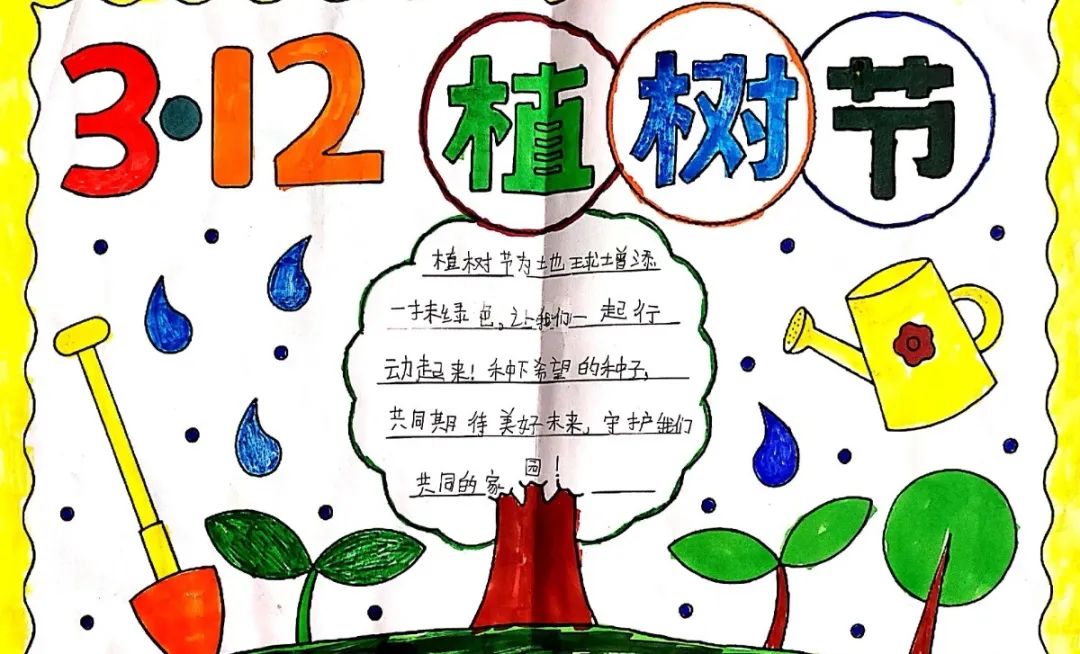 3·12 植树节
植树节为地球增添
一抹绿色。让我们一起行
动起来！种下希望的种子,
共同期待美好未来,守护我们
共同的家园！